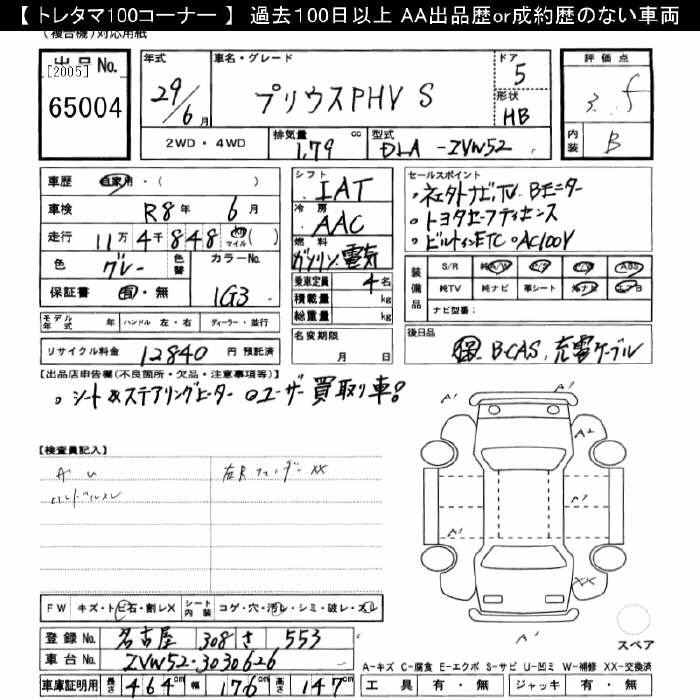 【 トレタマ100コーナー 】 過去100日以上 AA出品歴or成約歴のない車両
(複合機)対応用紙
出品No.
[2005]
65004
年式
29/6月
車名・グレード
プリウスPHV S
ドア
5
形状
HB
評価点
3. f
内装
B
2WD・4WD
排気量
1,79 cc
型式
DLA-ZVW52
車歴 自家用・( )
車検 R8年 6月
走行 11万4千848 km マイル( )
色 グレー
色替
カラーNo.
1G3
保証書 有・無
シフト
IAT
冷房
AAC
燃料
ガソリン、電気
乗車定員 4名
積載量 kg
総重量 kg
セールスポイント
・ネクタトナビ,TV Bモニター
・トヨタセーフティセンス
・ビルトインETC・AC100V
装備品
S/R 純A/W P/S P/W ABS
純TV 純ナビ 革シート 社ナビ エアB
ナビ型番:
モデル年式 年 ハンドル 左・右 ディーラー・並行
名変期限
月 日
リサイクル料金 12840 円 預託済
後日品
保 B-CAS, 充電ケーブル
【出品店申告欄(不良箇所・欠品・注意事項等)】
・シート&ステアリングヒーター ・ユーザー買取り車!
【検査員記入】
A U
右Rフェンダー XX
FW キズ・トビ石・割レX
シート内装 コゲ・穴・汚レ・シミ・破レ・スレ
登録No. 名古屋 308 さ 553
車台No. ZVW52-3030626
車庫証明用 長さ 464cm 幅 176cm 高さ 147cm
A' A' A2 A' A' XX A'
スペア
A-キズ C-腐食 E-エクボ S-サビ U-凹ミ W-補修 XX-交換済
工具 有・無 ジャッキ 有・無